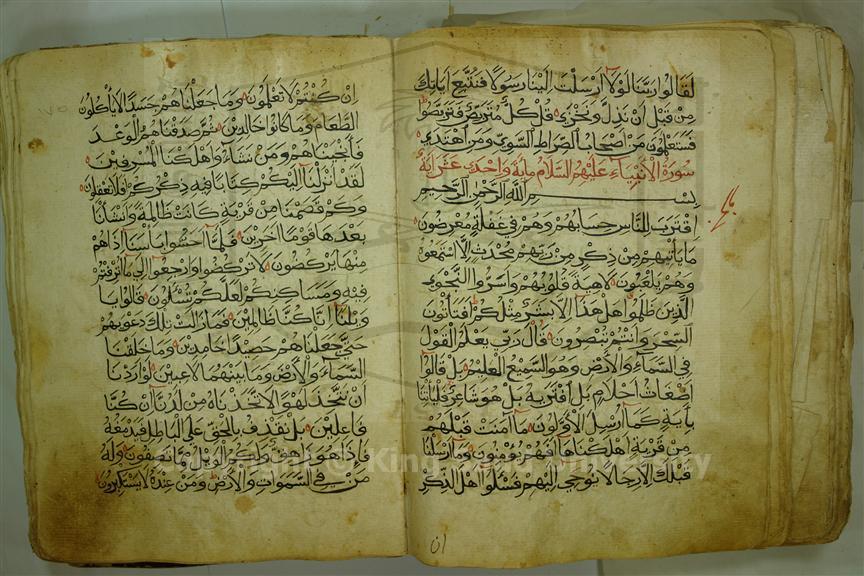 لقالوا ربنا لولا ارسلت الينا رسولا فنتبع اياتك
من قبل ان نذل ونخزى قل كل متربص فتربصوا
فستعلمون من اصحاب الصراط السوي ومن اهتدى
سورة الانبياء عليهم السلام ماية واحدى عشر اية
بسم الله الرحمن الرحيم
اقترب للناس حسابهم وهم في غفلة معرضون
ما ياتيهم من ذكر من ربهم محدث الا استمعوه
وهم يلعبون لاهية قلوبهم واسروا النجوى
الذين ظلموا هل هذا الا بشر مثلكم افتاتون
السحر وانتم تبصرون قال ربي يعلم القول
في السماء والارض وهو السميع العليم بل قالوا
اضغاث احلام بل افتريه بل هو شاعر فلياتنا
باية كما ارسل الاولون ما امنت قبلهم
من قرية اهلكناها افهم يؤمنون وما ارسلنا
قبلك الا رجالا يوحي اليهم فسئلوا اهل الذكر
ان كنتم لا تعلمون وما جعلناهم جسدا لا ياكلون
الطعام وما كانوا خالدين ثم صدقناهم الوعد
فانجيناهم ومن نشاء واهلكنا المسرفين
لقد انزلنا اليكم كتابا فيه ذكركم افلا تعقلون
وكم قصمنا من قرية كانت ظالمة وانشانا
بعدها قوما اخرين فلما احسوا باسنا اذا هم
منها يركضون لا تركضوا وارجعوا الى ما اترفتم
فيه ومساكنكم لعلكم تسئلون قالوا يا
ويلنا انا كنا ظالمين فما زالت تلك دعويهم
حتى جعلناهم حصيدا خامدين وما خلقنا
السماء والارض وما بينهما لاعبين لو اردنا
ان نتخذ لهوا لاتخذناه من لدنا ان كنا
فاعلين بل نقذف بالحق على الباطل فيدمغه
فاذا هو زاهق ولكم الويل مما تصفون وله
من في السموات والارض ومن عنده لا يستكبرون